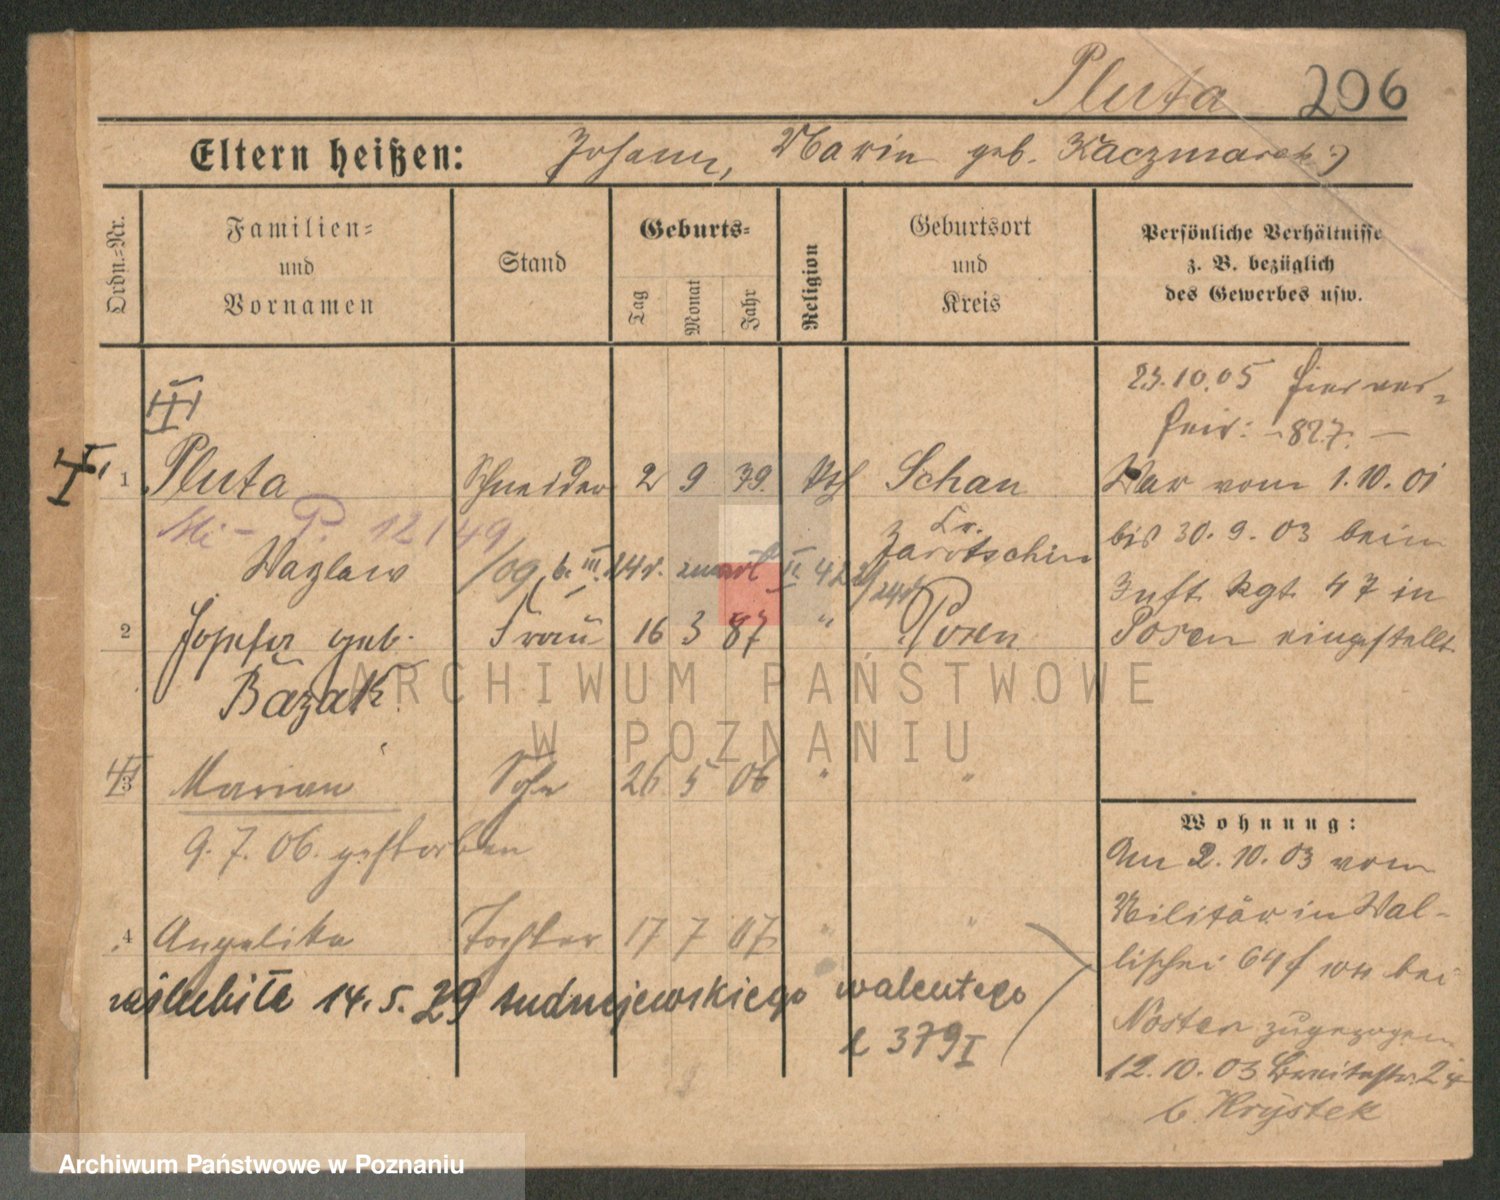 Pluta 206
Eltern heißen: Johann, Marin geb. Kaczmarek
Ordn.-Nr.
Familien-
und
Vornamen
Stand
Geburts-
Tag
Monat
Jahr
Religion
Geburtsort
und
Kreis
Persönliche Verhältnisse
z. B. bezüglich
des Gewerbes usw.
III
23.10.05
827.
1 Pluta Schneider 2 9 79. kth Schan
War vom 1.10.01
P. 12/49
Kr.
Jarotschin
bis 30.9.03 beim
Wazlaw
Inft. Rgt. 47 in
2 Josefa geb. Frau 16 3 87 " Posen
Posen eingestellt
Bazak
3 Marian Sohn 26 5 06 " "
9. 7. 06. gestorben
4 Angelika Tochter 17 7 07 " "
zaślubiła 14.5.29 walentego
379 I
Wohnung:
Am 2.10.03 vom
Militär in Wal-
lischei 64 bei
zugezogen
12.10.03 Breitestr. 24
b. Krystek
ARCHIWUM PAŃSTWOWE
W POZNANIU
Archiwum Państwowe w Poznaniu